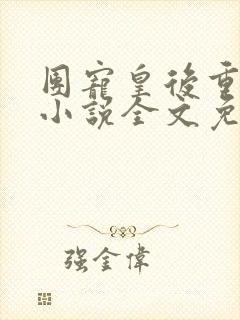 團寵皇後重
小說全文免
强金偉